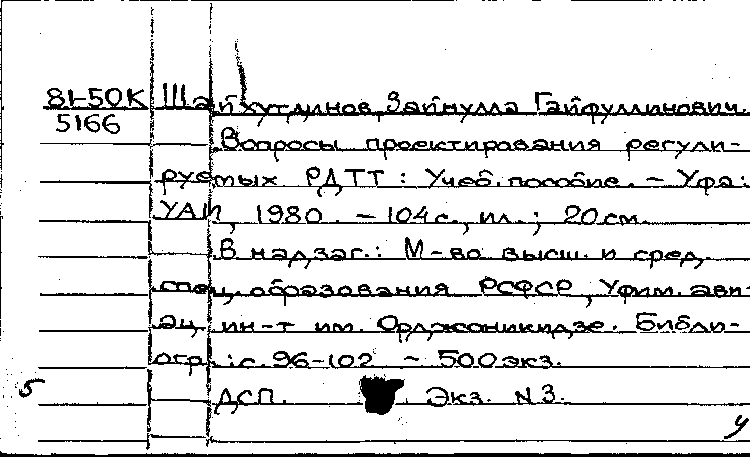 81-50К Шайхутдинов, Зайнулла Гайфуллинович.
5166
Вопросы проектирования регули-
руемых РДТТ : Учеб. пособие. – Уфа:
УАИ, 1980. – 104 с., ил.; 20 см.
В надзаг.: М-во высш. и сред.
спец. образования РСФСР, Уфим. ави-
ац. ин-т им. Орджоникидзе. Библи-
огр.: с. 96-102 – 500 экз.
5 ДСП. Экз. N 3.
у